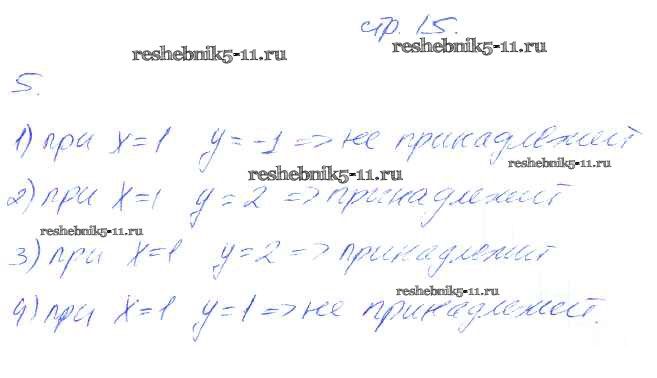 стр. 15.
reshebnik5-11.ru
reshebnik5-11.ru
5.
1) при x=1 y=-1 => не принадлежит
reshebnik5-11.ru
reshebnik5-11.ru
2) при x=1 y=2 => принадлежит
reshebnik5-11.ru
3) при x=1 y=2 => принадлежит
reshebnik5-11.ru
4) при x=1 y=1 => не принадлежит.